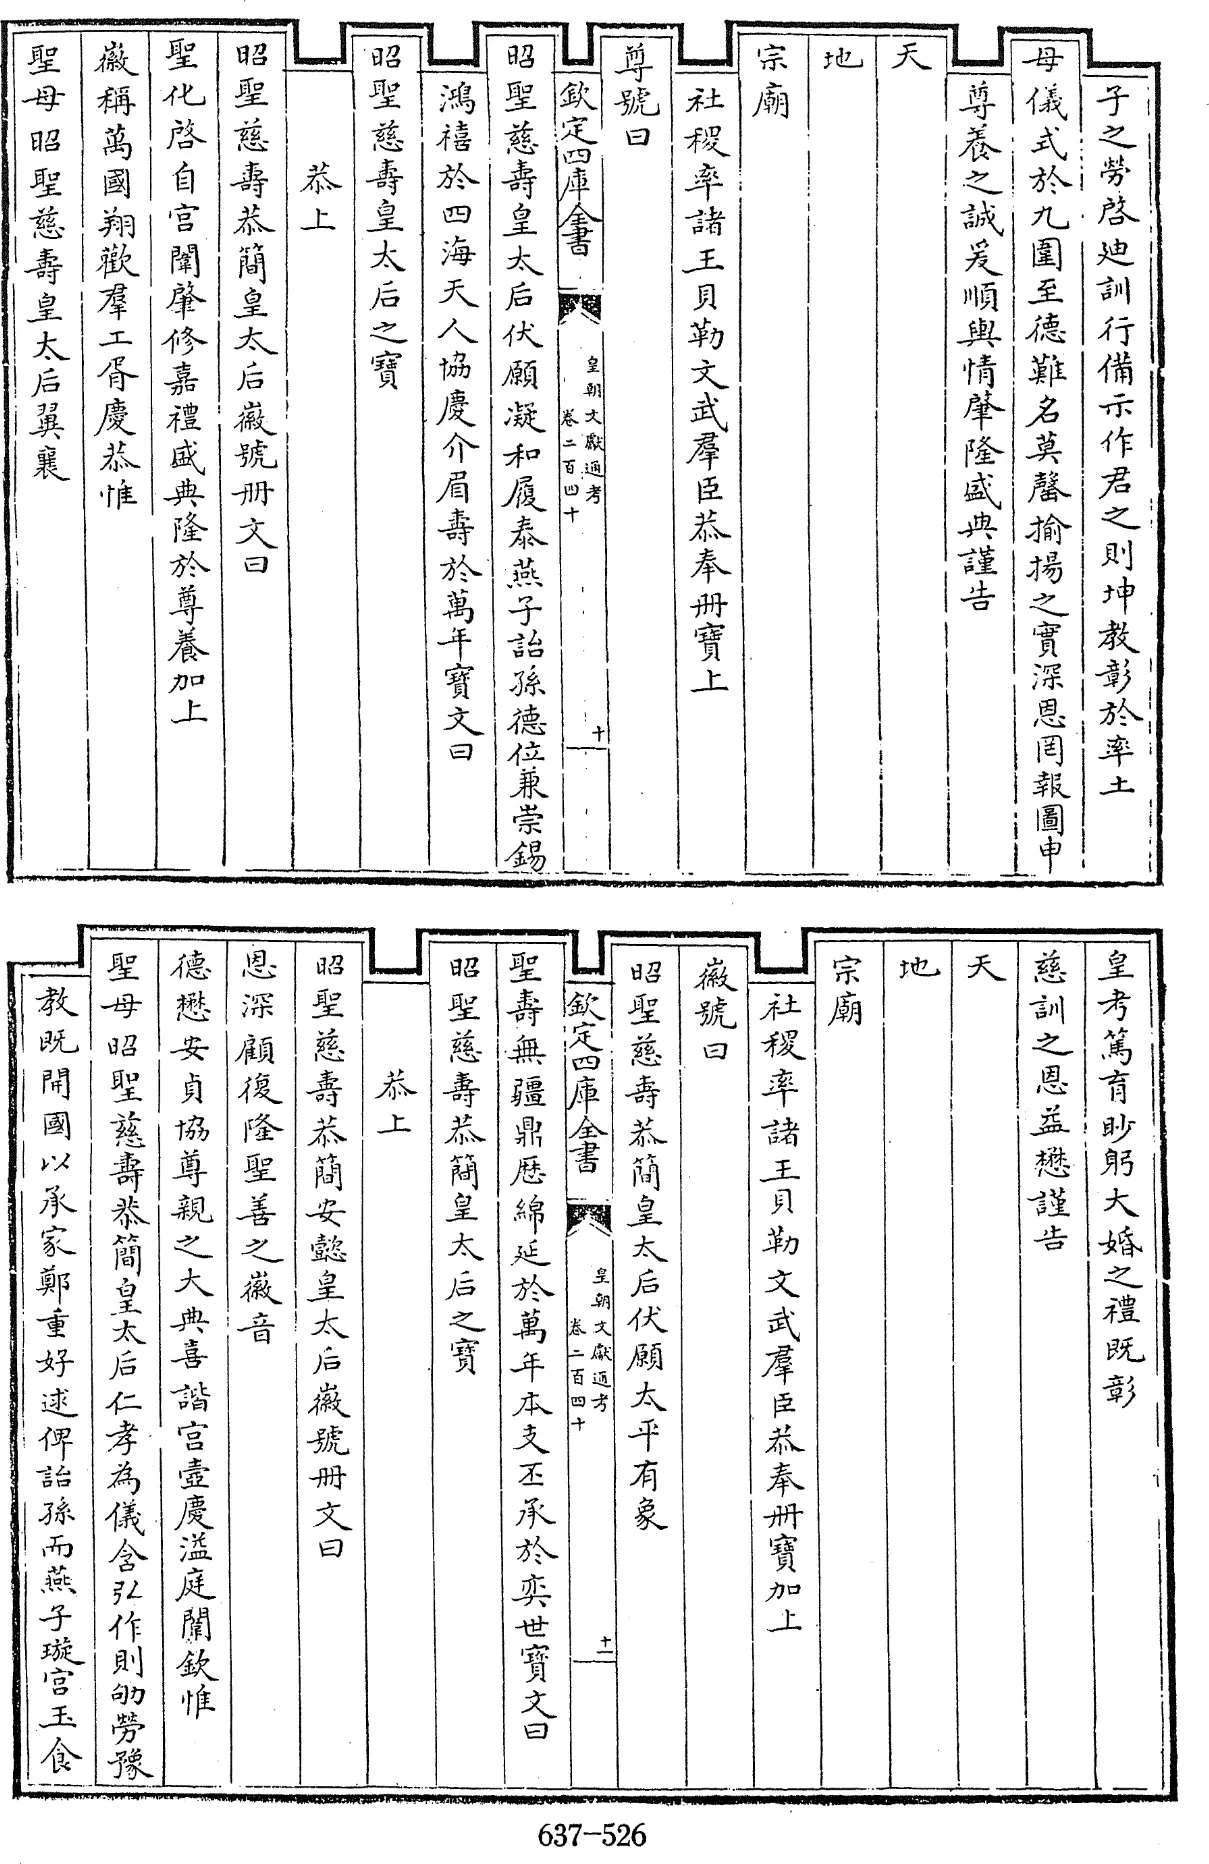 子之勞啓迪訓行備示作君之則坤教彰於率土
母儀式於九圍至德難名莫罄揄揚之實深恩罔報圖申
尊養之誠爰順輿情肇隆盛典謹告
天
地
宗廟
社稷率諸王貝勒文武羣臣恭奉册寶上
尊號曰
欽定四庫全書
皇朝文獻通考
卷二百四十
十
昭聖慈壽皇太后伏願凝和履泰燕子詒孫德位兼崇錫
鴻禧於四海天人協慶介眉壽於萬年寶文曰
昭聖慈壽皇太后之寶
恭上
昭聖慈壽恭簡皇太后徽號册文曰
聖化啓自宫闈肇修嘉禮盛典隆於尊養加上
徽稱萬國翔歡羣工胥慶恭惟
聖母昭聖慈壽皇太后翼襄
皇考篤育眇躬大婚之禮既彰
慈訓之恩益懋謹告
天
地
宗廟
社稷率諸王貝勒文武羣臣恭奉册寶加上
徽號曰
昭聖慈壽恭簡皇太后伏願太平有象
欽定四庫全書
皇朝文獻通考
卷二百四十
十一
聖壽無疆鼎歷綿延於萬年本支丕承於奕世寶文曰
昭聖慈壽恭簡皇太后之寶
恭上
昭聖慈壽恭簡安懿皇太后徽號册文曰
恩深顧復隆聖善之徽音
德懋安貞協尊親之大典喜諧宫壼慶溢庭闈欽惟
聖母昭聖慈壽恭簡皇太后仁孝為儀含弘作則劬勞豫
教既開國以承家鄭重好逑俾詒孫而燕子璇宫玉食
637-526